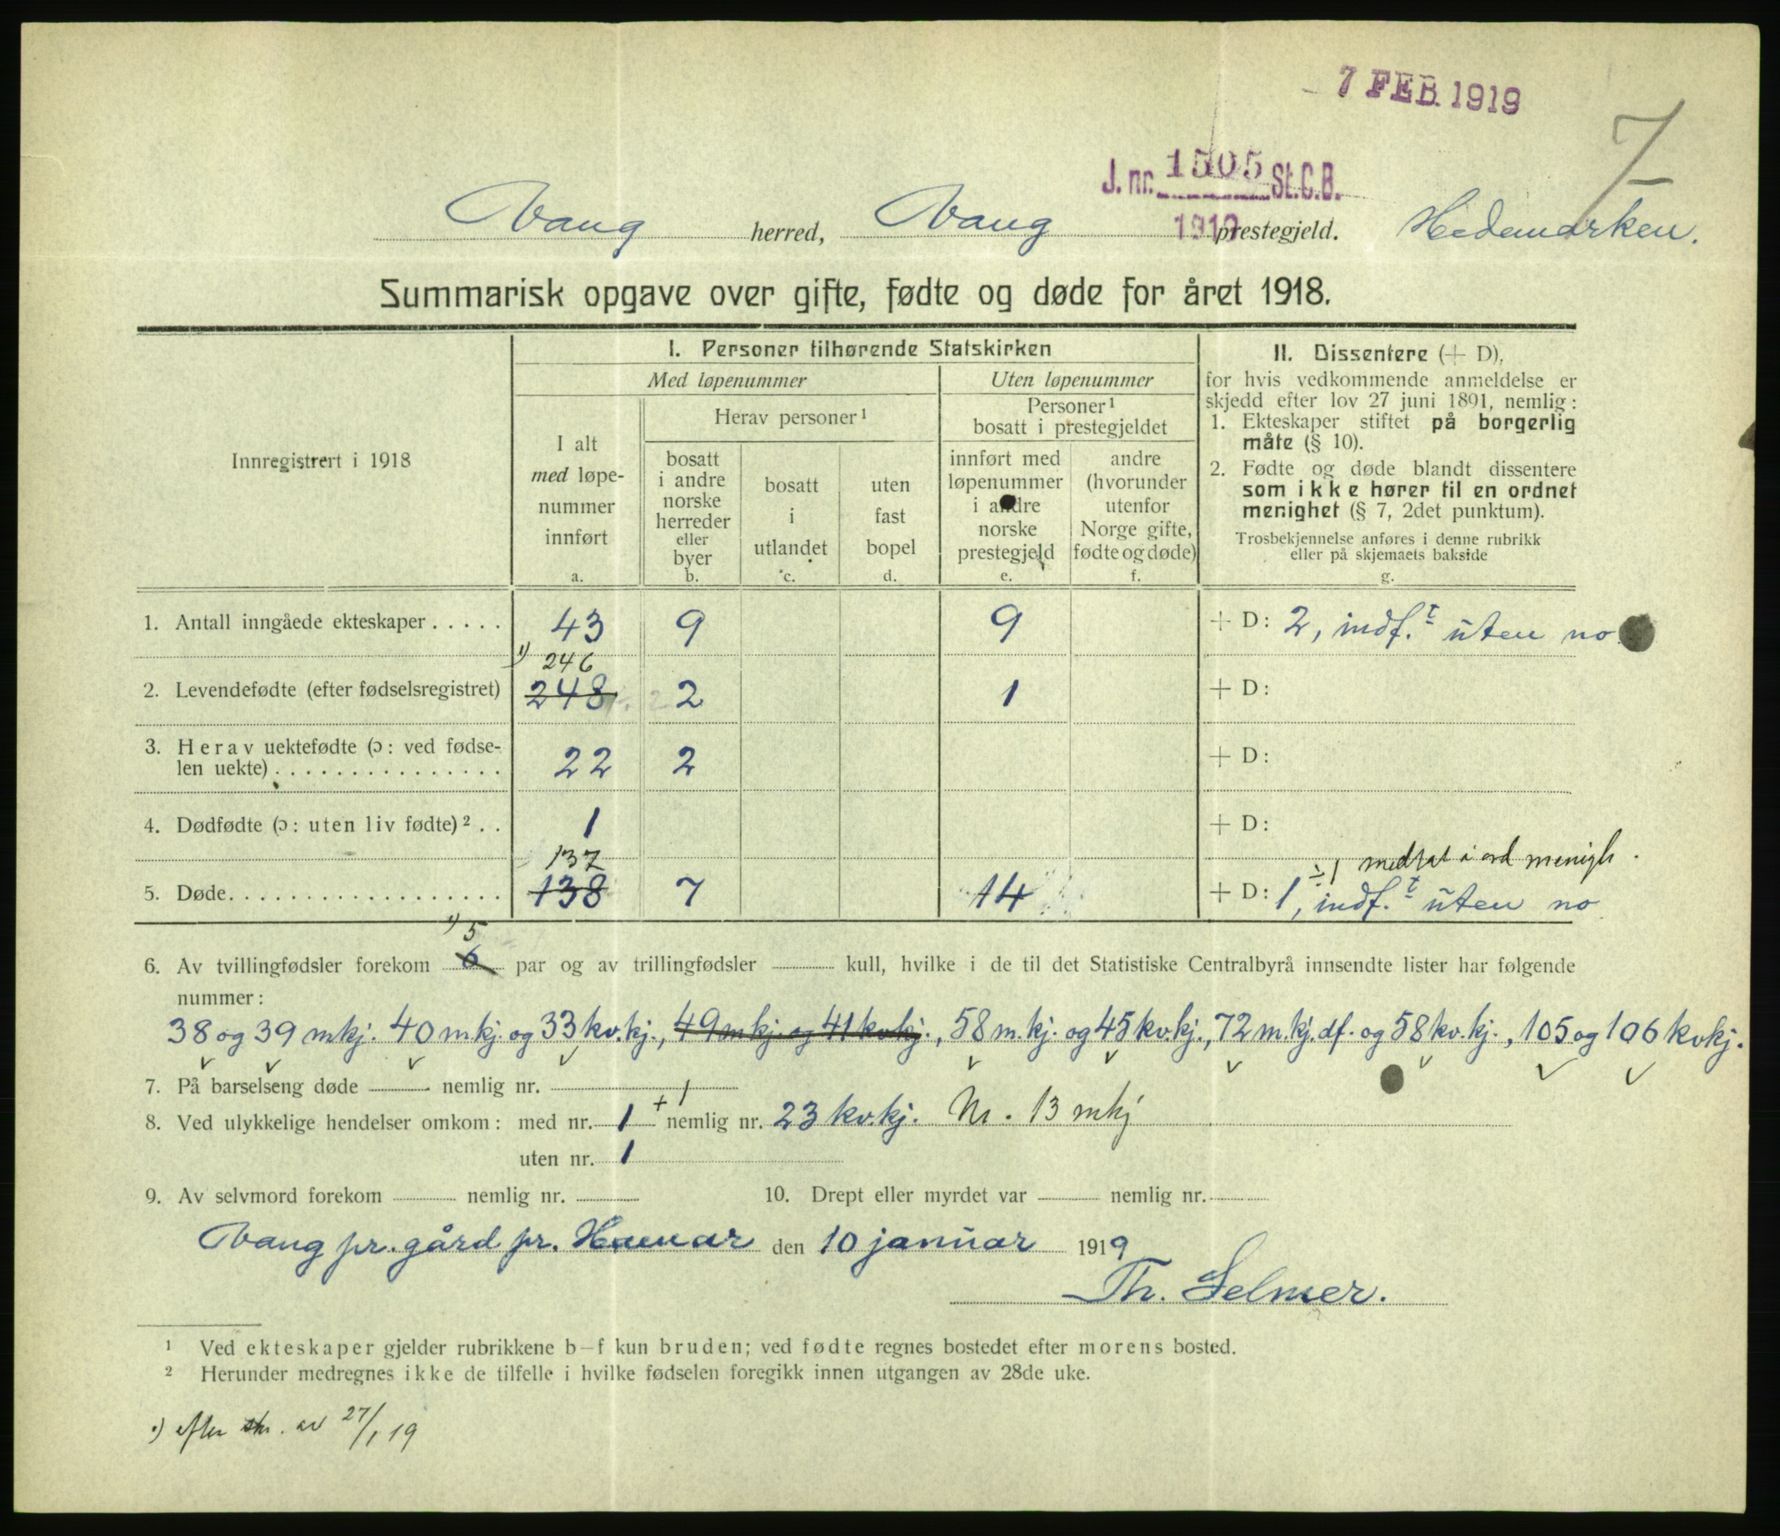 7 FEB. 1919
7
J. nr. 1505 St.C.B.
1919
Vang herred, Vang prestegjeld. Hedemarken.
Summarisk opgave over gifte, fødte og døde for året 1918.
Innregistrert i 1918
I. Personer tilhørende Statskirken
Med løpenummer
Uten løpenummer
I alt
med løpe-
nummer
innført
a.
Herav personer¹
bosatt
i andre
norske
herreder
eller
byer
b.
bosatt
i
utlandet
c.
uten
fast
bopel
d.
Personer¹
bosatt i prestegjeldet
innført med
løpenummer
i andre
norske
prestegjeld
e.
andre
(hvorunder
utenfor
Norge gifte,
fødte og døde)
f.
II. Dissentere (+ D),
for hvis vedkommende anmeldelse er
skjedd efter lov 27 juni 1891, nemlig:
1. Ekteskaper stiftet på borgerlig
måte (§ 10).
2. Fødte og døde blandt dissentere
som ikke hører til en ordnet
menighet (§ 7, 2det punktum).
Trosbekjennelse anføres i denne rubrikk
eller på skjemaets bakside
g.
1. Antall inngåede ekteskaper . . . . . 43 9 9 + D: 2, indf.t uten no
1) 246
2. Levendefødte (efter fødselsregistret) 248 2 1 + D:
3. Herav uektefødte (ɔ: ved fødse-
len uekte) . . . . . . . . . . . . . . . 22 2 + D:
4. Dødfødte (ɔ: uten liv fødte)² . . 1 + D:
137 ÷1 medtat i ord menigh.
5. Døde. . . . . . . . . . . . . . . . . . 138 7 14 + D: 1, indf.t uten no
1) 5
6. Av tvillingfødsler forekom 6 par og av trillingfødsler kull, hvilke i de til det Statistiske Centralbyrå innsendte lister har følgende
nummer:
38 og 39 mkj. 40 mkj. og 33 kv.kj., 49 mkj og 41 kvkj., 58 m.kj. og 45 kv.kj., 72 m.kj. df. og 58 kv.kj., 105 og 106 kvkj.
7. På barselseng døde nemlig nr.
8. Ved ulykkelige hendelser omkom: med nr. 1 + 1 nemlig nr. 23 kv.kj. Nr. 13 mkj
uten nr. 1
9. Av selvmord forekom nemlig nr. 10. Drept eller myrdet var nemlig nr.
Vang pr. gård pr. Hamar den 10 januar 1919
Th. Selmer.
¹ Ved ekteskaper gjelder rubrikkene b–f kun bruden; ved fødte regnes bostedet efter morens bosted.
² Herunder medregnes ikke de tilfelle i hvilke fødselen foregikk innen utgangen av 28de uke.
1) efter skr. av 27/1 19